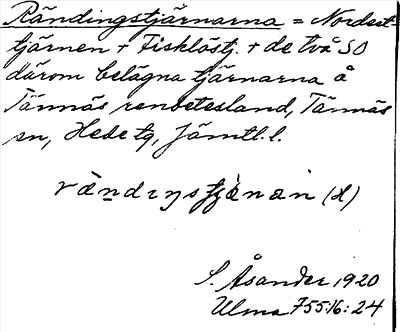 Rändingstjärnarna = Nordest-
tjärnen + Fisklöstj. + de två SO
därom belägna tjärnarna å
Tännäs renbetesland, Tännäs
sn, Hede tg, Jämtl. l.
(d)
S. Åsander 1920
Ulma 755:16:24